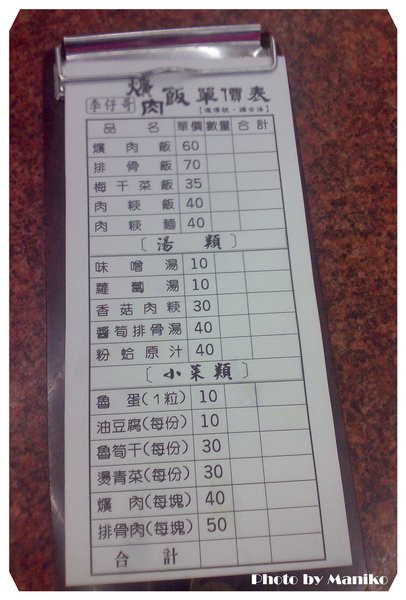 李仔哥 爌肉飯 單價表
[遵傳統・溯古法]
品名 單價 數量 合計
爌肉飯 60
排骨飯 70
梅干菜飯 35
肉粳飯 40
肉粳麵 40
〔湯類〕
味噌湯 10
蘿蔔湯 10
香菇肉粳 30
醬筍排骨湯 40
粉蛤原汁 40
〔小菜類〕
魯蛋(1粒) 10
油豆腐(每份) 10
魯筍干(每份) 30
燙青菜(每份) 30
爌肉(每塊) 40
排骨肉(每塊) 50
合計
Photo by Maniko